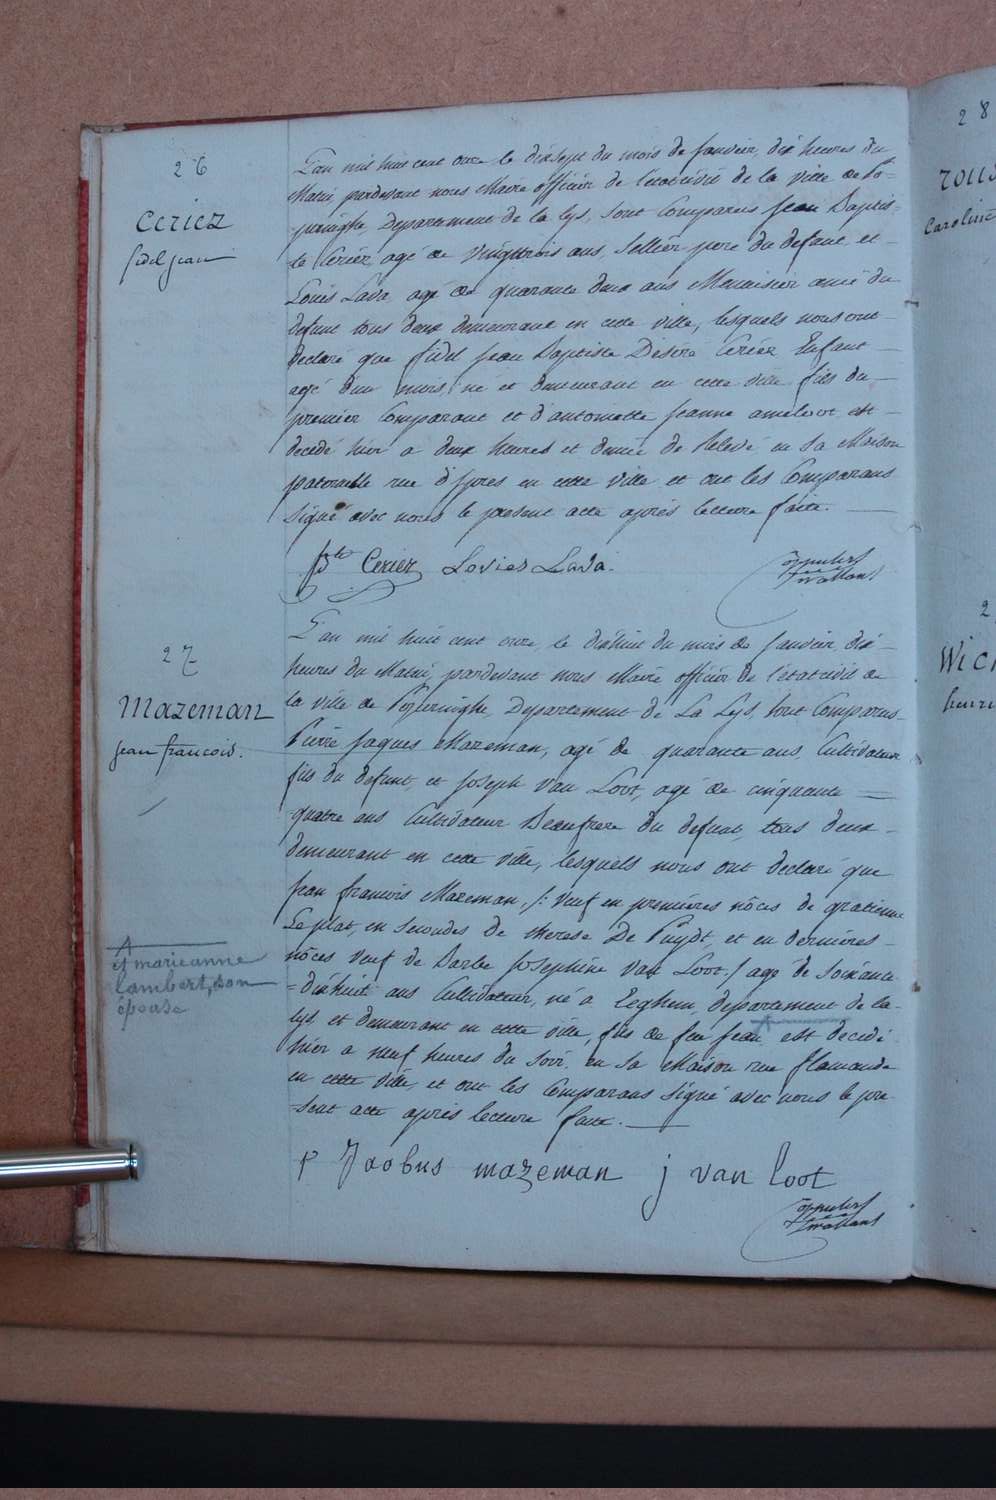 26
Ceriez
fidel jean
L'an mil huit cent onze le dixsept du mois de Janvier, dix heures du
Matin, pardevant nous Maire officier de l'état civil de la ville de Po-
peringhe, Departement de la Lys, sont Comparus Jean Baptis-
te Ceriez, agé de vingttrois ans, Sellier, pere du defunt, et
Louis Lava, agé de quarante deux ans Menuisier ami du
defunt tous deux demeurant en cette ville, lesquels nous ont
declaré que fidel Jean Baptiste Désiré Ceriez Enfant
agé d'un mois, né et demeurant en cette ville fils du
premier Comparant et d'antoinette Jeanne ameloot est
decedé hier a deux heures et demie de Relevé en sa Maison
paternelle rue d'Ypres en cette ville et ont les Comparans
signé avec nous le present acte après lecture faite.
Bte Ceriez Lovies Lava.
27
Mazeman
jean francois.
L'an mil huit cent onze, le dixhuit du mois de Janvier, dix
heures du Matin, pardevant nous Maire officier de l'état civil de
la ville de Poperinghe, Departement de La Lys, sont Comparus
Pierre Jaques Mazeman, agé de quarante ans, Cultivateur
fils du defunt, et Joseph Van Loot, agé de cinquante
quatre ans Cultivateur Beaufrere du defunt, tous deux
demeurant en cette ville, lesquels nous ont declaré que
Jean francois Mazeman, /: veuf en premières nôces de gratienne
Leplat, en secondes de therese De Puydt, et en dernières
nôces veuf de Barbe Josephine Van Loot :/ agé de soixante
=dixhuit ans Cultivateur, né a Leghem, departement de la
lys, et demeurant en cette ville, fils de feu Jean, est decedé
hier a neuf heures du soir, en sa Maison rue flamande
en cette ville, et ont les Comparans signé avec nous le pre-
sent acte après lecture faite.
et marieanne
lambert, son
épouse
P Jacobus mazeman j van loot
28
Caroline